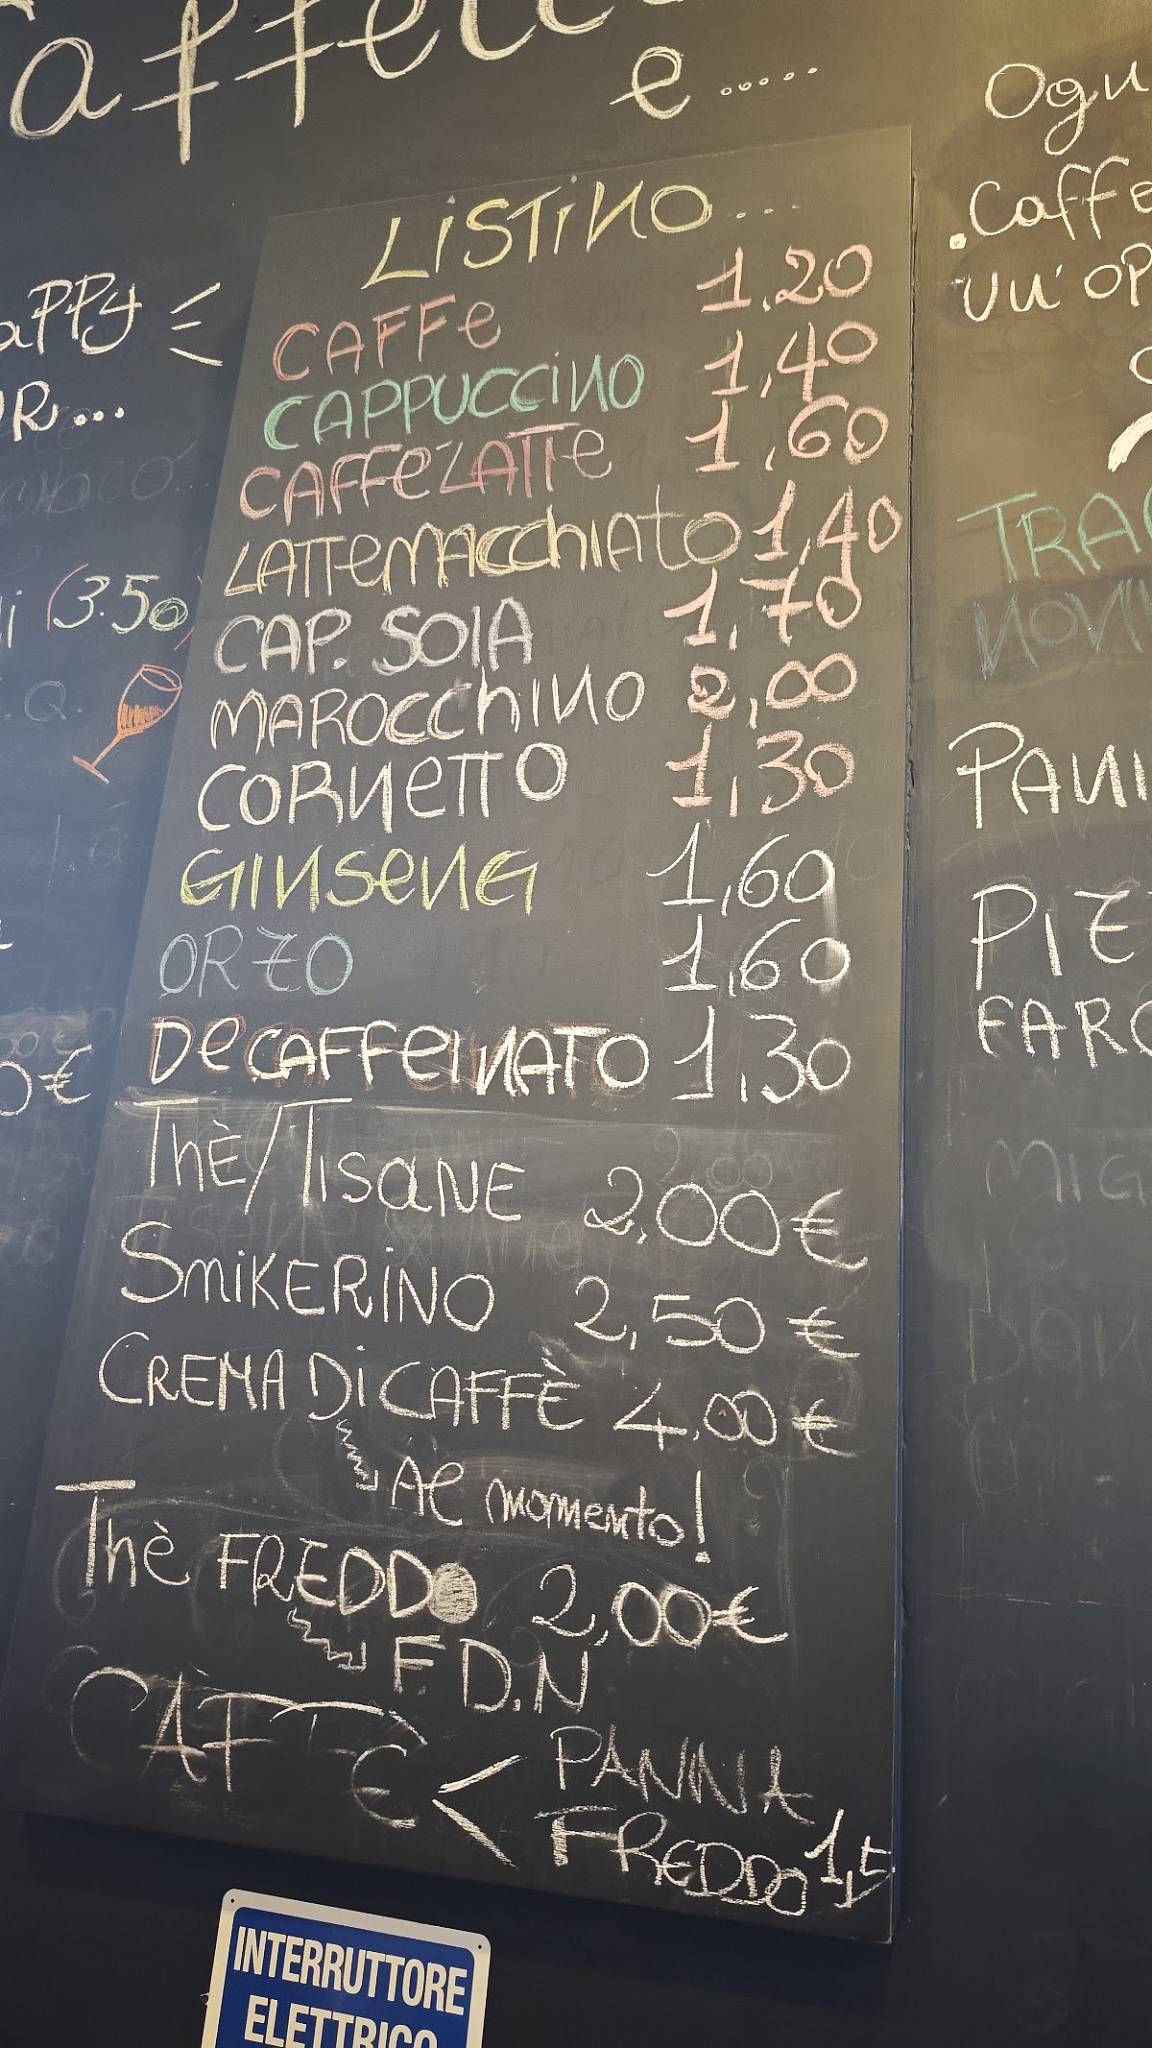 e.....
LISTINO....
CAFFE 1.20
CAPPUCCINO 1,40
CAFFELATTE 1,60
LATTEMACCHIATO 1,40
CAP. SOIA 1,70
MAROCCHINO 2,00
CORNETTO 1,30
GINSENG 1,60
ORZO 1,60
DECAFFEINATO 1,30
Thè/TISANE 2,00€
SMIKERINO 2,50€
CREMA DI CAFFÈ 4,00€
Al momento!
Thè FREDDO 2,00€
F.D.N
CAFFE < PANNA
FREDDO 1,5
aPPy
UR...
(3.50)
0€
Ogn
.Caffe
un'op
TRA
PANI
PIZ
FARC
MIG
INTERRUTTORE
ELETTRICO